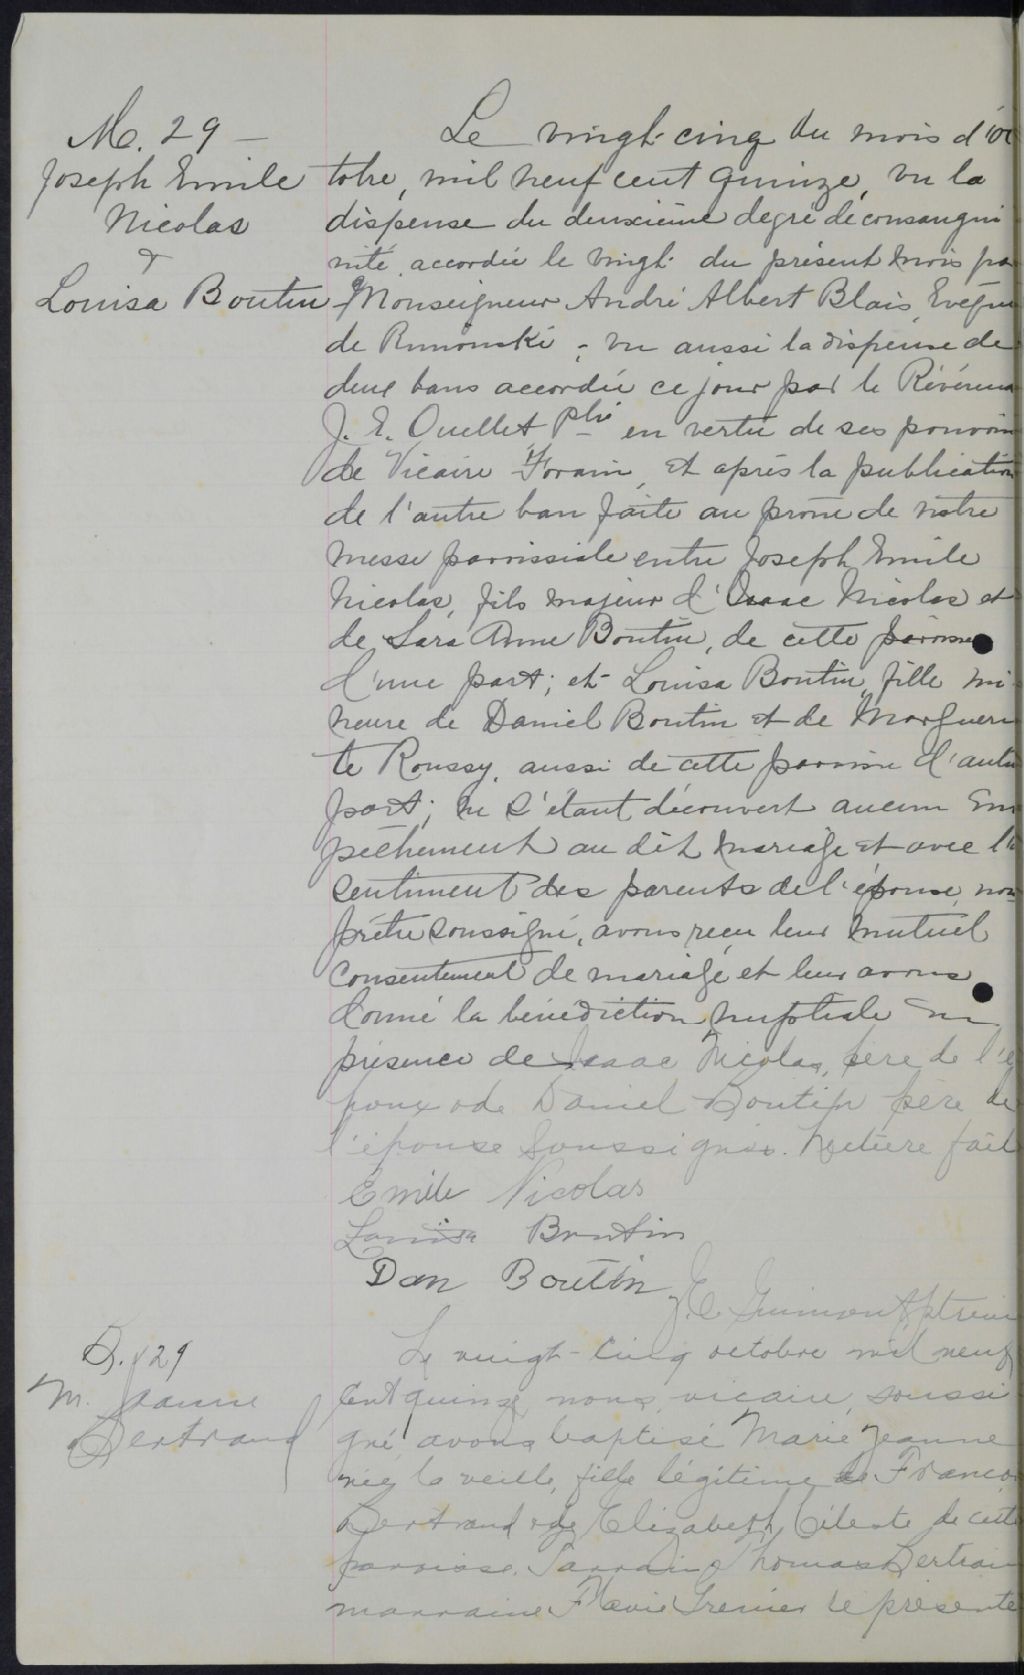 M. 29 —
Joseph Emile
Nicolas
&
Louisa Boutin
Le vingt-cinq du mois d'oc
tobre, mil neuf cent quinze, vu la
dispense du deuxième degré de consangui
nité, accordée le vingt du présent mois par
Monseigneur André Albert Blais, Evêque
de Rimouski ; vu aussi la dispense de
deux bans accordée ce jour par le Révérend
J. E. Ouellet Ptre en vertu de ses pouvoirs
de Vicaire Forain, et après la publication
de l'autre ban faite au prône de notre
messe paroissiale entre Joseph Emile
Nicolas, fils majeur d'Isaac Nicolas et
de Sara Anne Boutin, de cette paroisse
d'une part; et Louisa Boutin, fille mi
neure de Daniel Boutin et de Margueri
te Roussy, aussi de cette paroisse d'autre
part; ne s'étant découvert aucun em
pêchement au dit mariage et avec le
sentiment des parents de l'épouse, nous
prêtre soussigné, avons reçu leur mutuel
consentement de mariage et leur avons
donné la bénédiction nuptiale en
présence de Isaac Nicolas, père de l'é
poux & de Daniel Boutin père de
l'épouse soussignés. Lecture faite
Emile Nicolas
Louisa Boutin
Dan Boutin
J. E. Guimont, ptre
B. 29
M. Jeanne
Bertrand
Le vingt-cinq octobre mil neuf
cent quinze nous, vicaire, soussi
gné avons baptisé Marie Jeanne
née la veille, fille légitime de François
Bertrand & de Elizabeth Céleste de cette
paroisse. Parrain Thomas Bertrand
marraine Flavie Grenier représenté